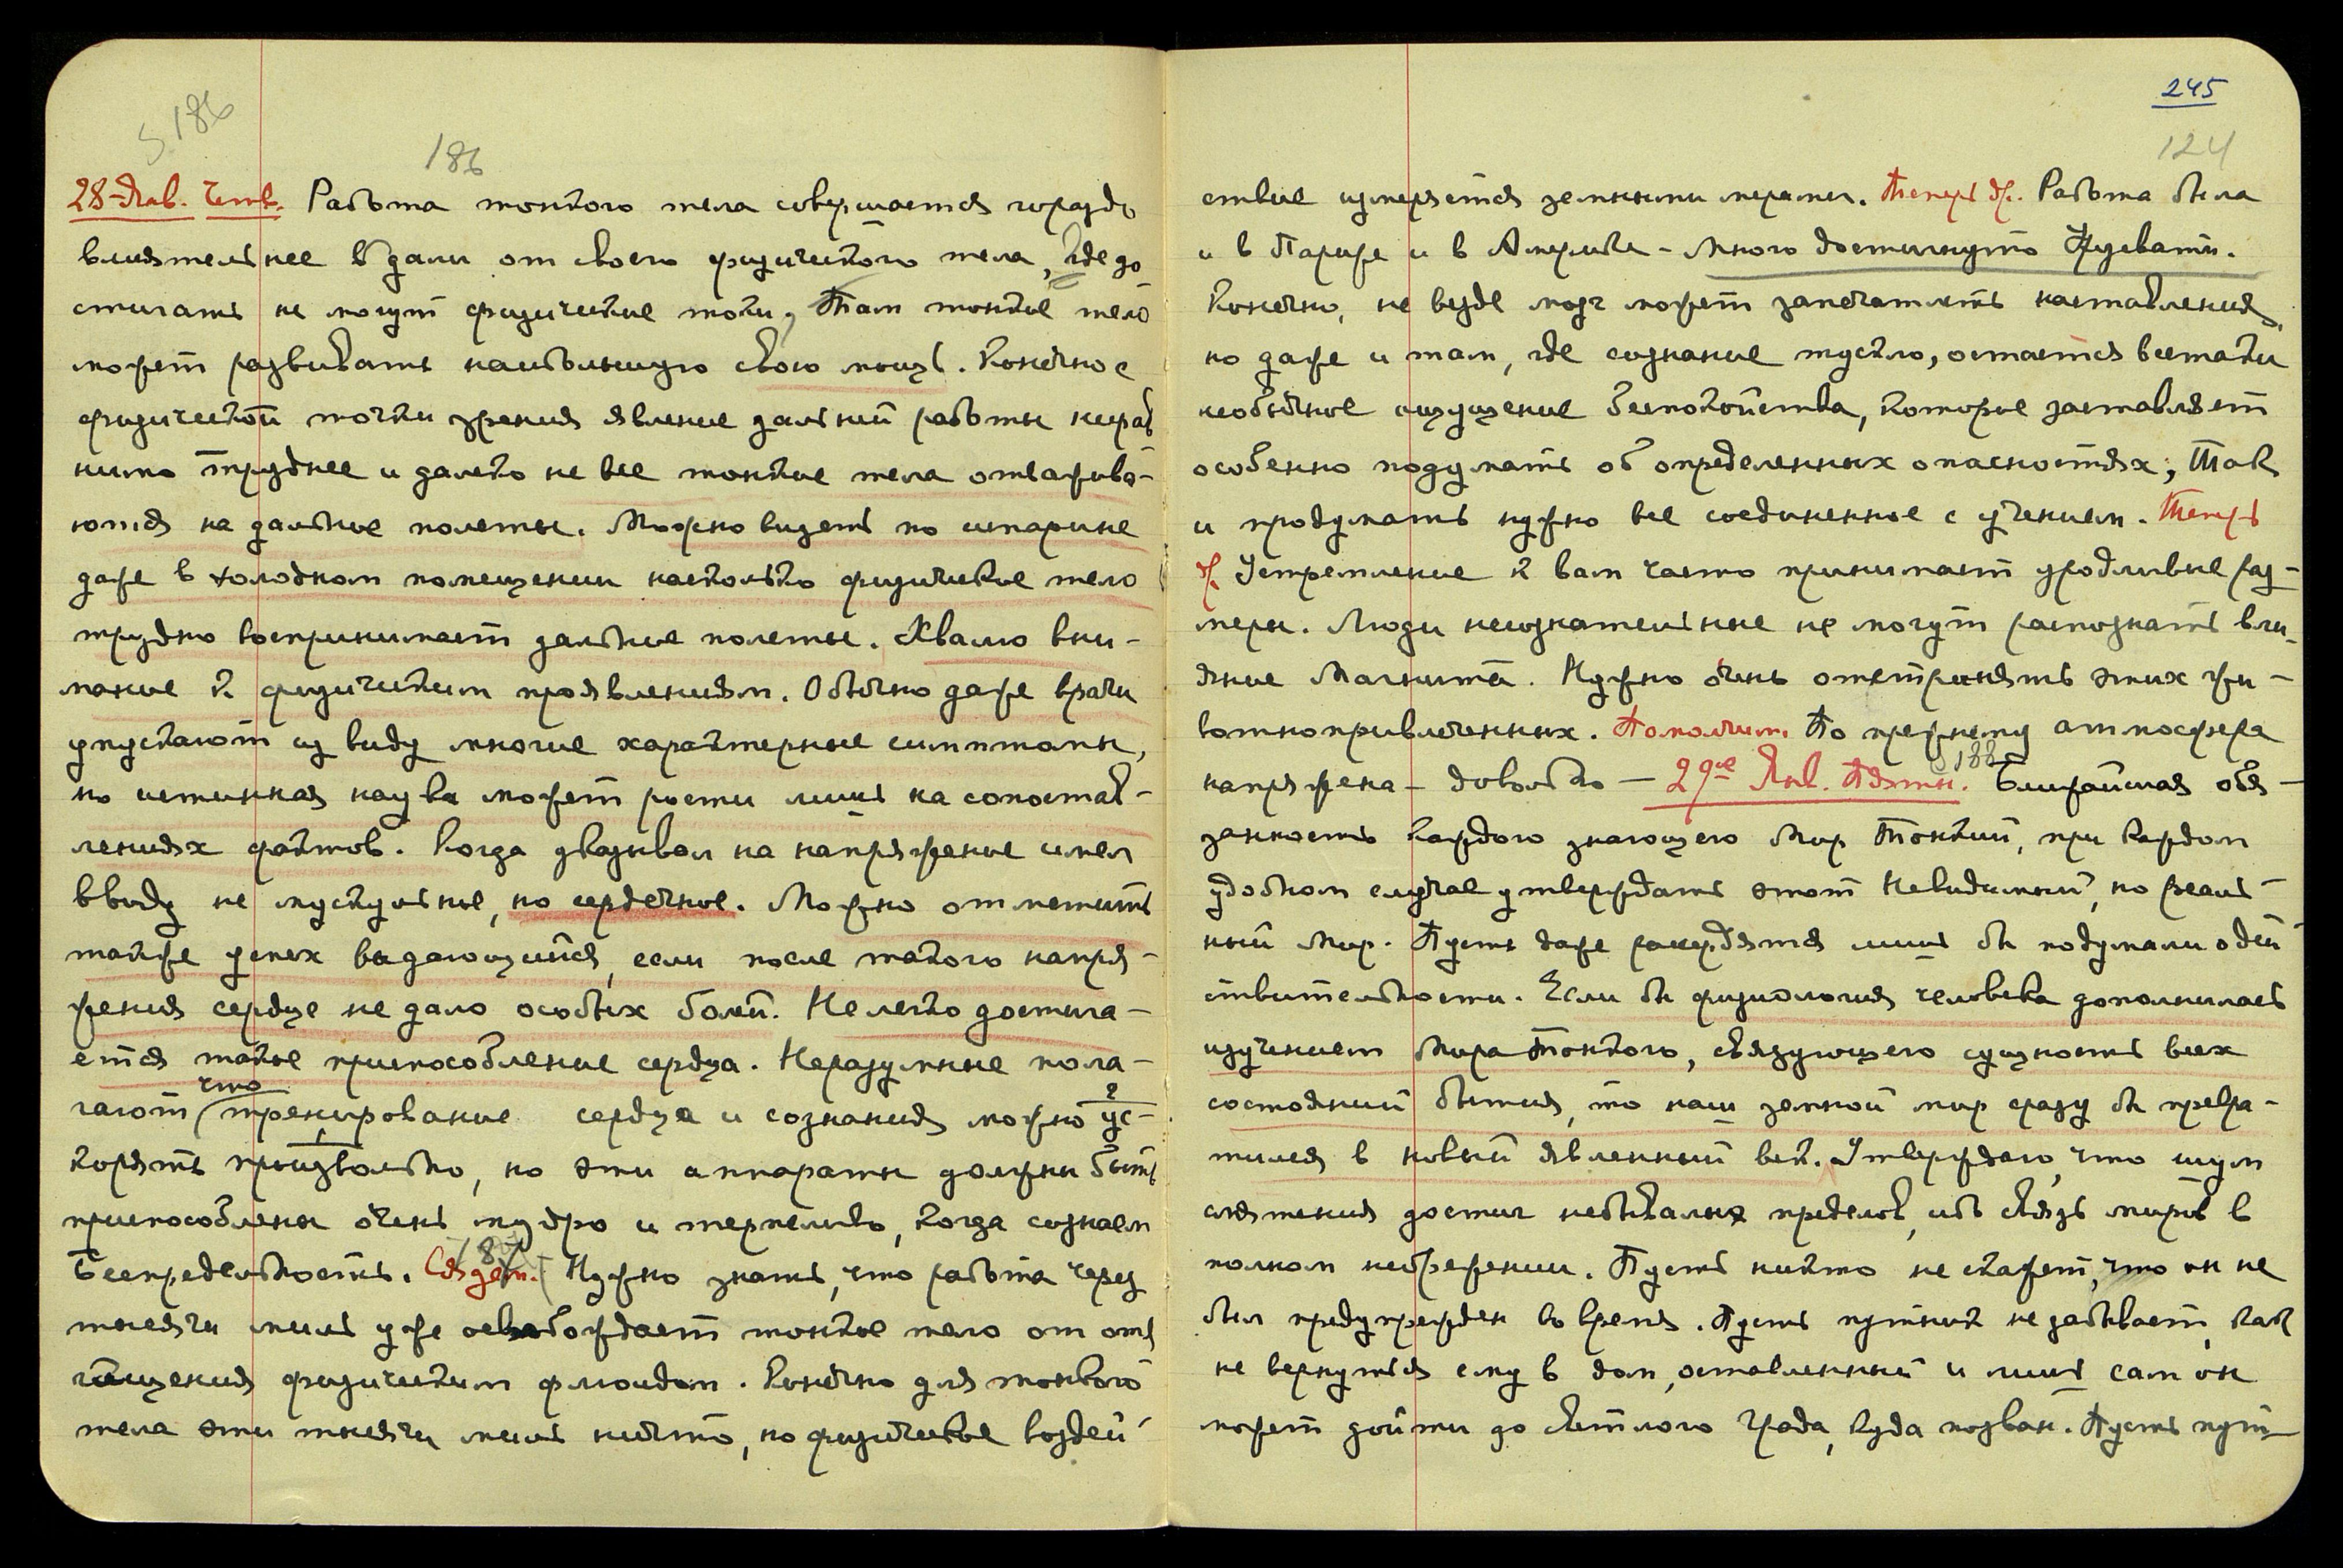 § 186
186
28-Янв. Четв. Работа тонкого тела совершается гораздо
влиятельнее вдали от своего физического тела, где до
стигать не могут физические токи, Там тонкое тело
может развивать наибольшую свою мощь. Конечно с
физической точки зрения явление дальней работы нирав
нимо труднее и далеко не все тонкие тела отважива-
ются на дальние полеты. Можно видеть по испарине
даже в холодном помещении насколько физическое тело
трудно воспринимает дальние полеты. Хвалю вни-
мание к физическим проявлениям. Обычно даже врачи
упускают из виду многие характерные симптомы,
но истинная наука может расти лишь на сопостав-
лениях фактов. Когда указывал на напряжение имел
ввиду не мускульное, но сердечное. Можно отметить
также успех выдающийся, если после такого напря-
жения сердце не дало особых болей. Нелегко достига-
ется такое приспособление сердца. Неразумные пола-
что
гают тренирование сердца и сознания можно ус-
корять произвольно, но эти аппараты должны быть
приспособлены очень мудро и терпеливо, когда сознаем
Беспредельность. 187 Нужно знать, что работа через
тысячи миль уже освобождает тонкое тело от отя
гощения физическим флюидом. Конечно для тонкого
тела эти тысячи миль ничто, но физическое воздей
245
124
ствие измеряется земными мерами. Теперь др. Работа была
и в Париже и в Америке - много достигнуто
Конечно, не везде мозг может запечатлеть наставления,
но даже и там, где сознание тускло, остается всетаки
необычное ощущение беспокойства, которое заставляет
особенно подумать об определенных опасностях; Так
и продумать нужно все соединенное с учением. Теперь
др. Устремление к вам часто принимает уродливые раз-
меры. Люди несознательные не могут распознать вли-
яние Магнита. Нужно очень отстранять этих жи-
вотнопривлеченных. Помолчим. По прежнему атмосфера
напряжена - довольно - 29ое Янв. Пятн. § 188 Ближайшая обя-
занность каждого знающего Мир Тонкий, при каждом
удобном случае утверждать этот Невидимый, но реаль-
ный Мир. Пусть даже рассердятся лишь бы подумали о дей
ствительности. Если бы физиология человека дополнилась
изучением Мира Тонкого, связующего сущность всех
состояний бытия, то наш земной мир сразу бы превра-
тился в новый явленный век. Утверждаю, что шум
смятения достиг небывалых пределов, ибо связь миров в
полном небрежении. Пусть никто не скажет, что он не
был предупрежден во время. Пусть путник не забывает, как
не вернуться ему в дом, оставленный и лишь сам он
может дойти до светлого Града, куда позван. Пусть пут-